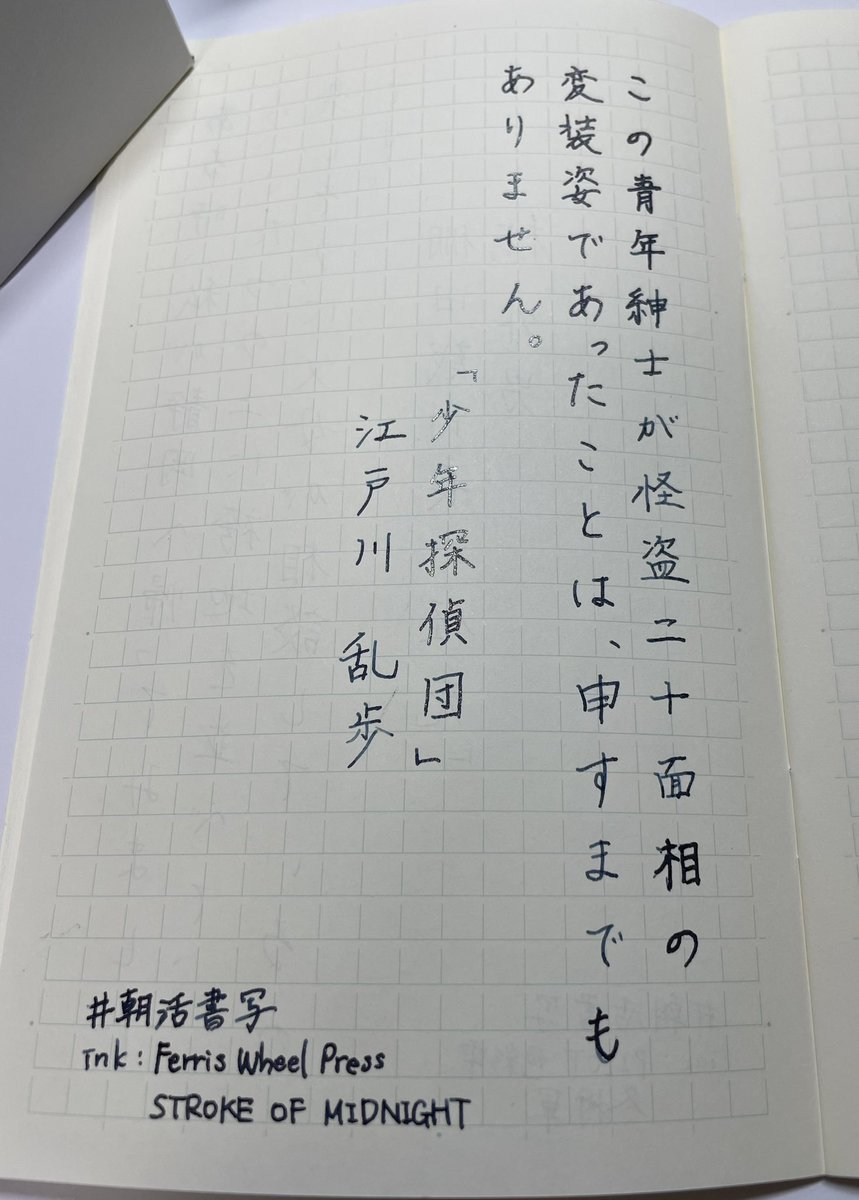 この青年紳士が怪盗二十面相の
変装姿であったことは、申すまでも
ありません。
「少年探偵団」
江戸川 乱歩
#朝活書写
Ink: Ferris Wheel Press
STROKE OF MIDNIGHT